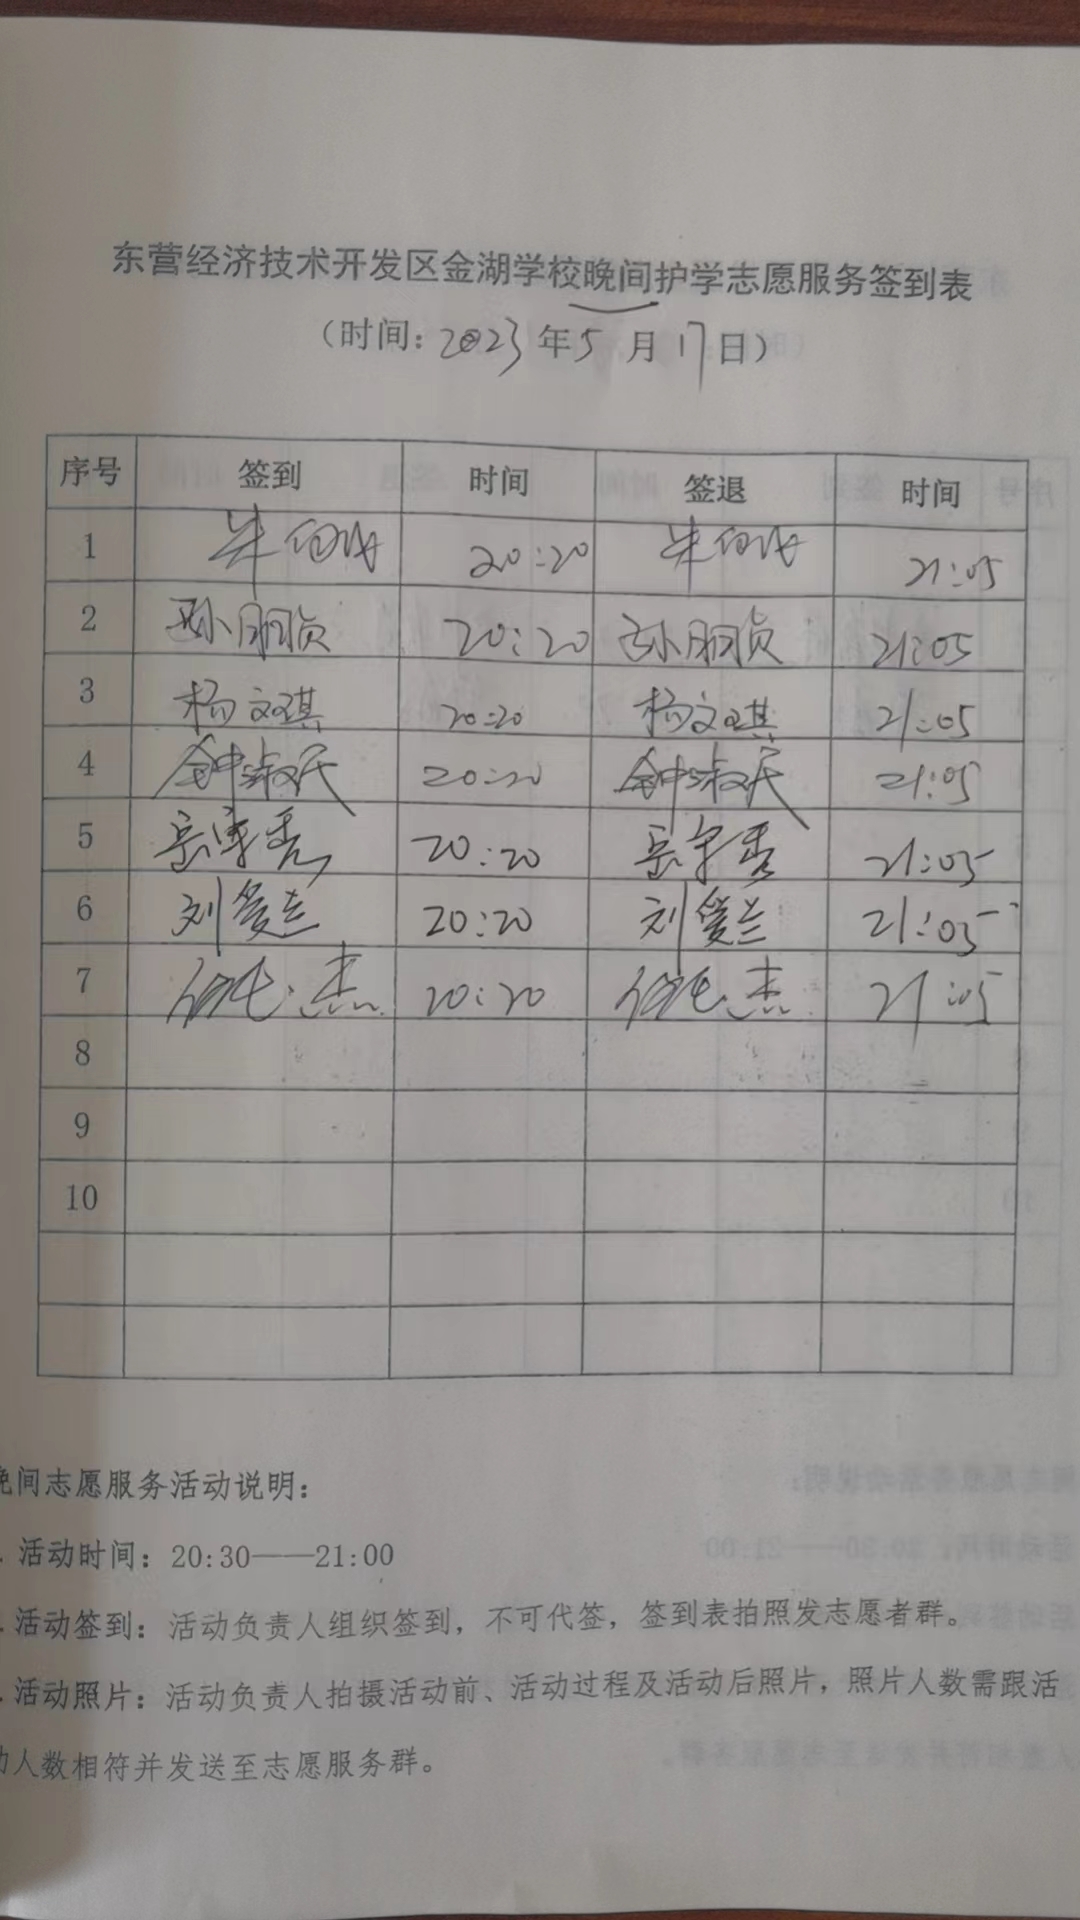 东营经济技术开发区金湖学校晚间护学志愿服务签到表
（时间：2023年5月17日）
序号 签到 时间 签退 时间
1 20:20 21:05
2 孙朋贞 20:20 孙朋贞 21:05
3 杨文琪 20:20 杨文琪 21:05
4 钟淑民 20:20 钟淑民 21:05
5 20:20 21:05
6 刘爱兰 20:20 刘爱兰 21:05
7 杰 20:20 杰 21:05
8
9
10
晚间志愿服务活动说明：
. 活动时间：20:30——21:00
. 活动签到：活动负责人组织签到，不可代签，签到表拍照发志愿者群。
. 活动照片：活动负责人拍摄活动前、活动过程及活动后照片，照片人数需跟活
动人数相符并发送至志愿服务群。